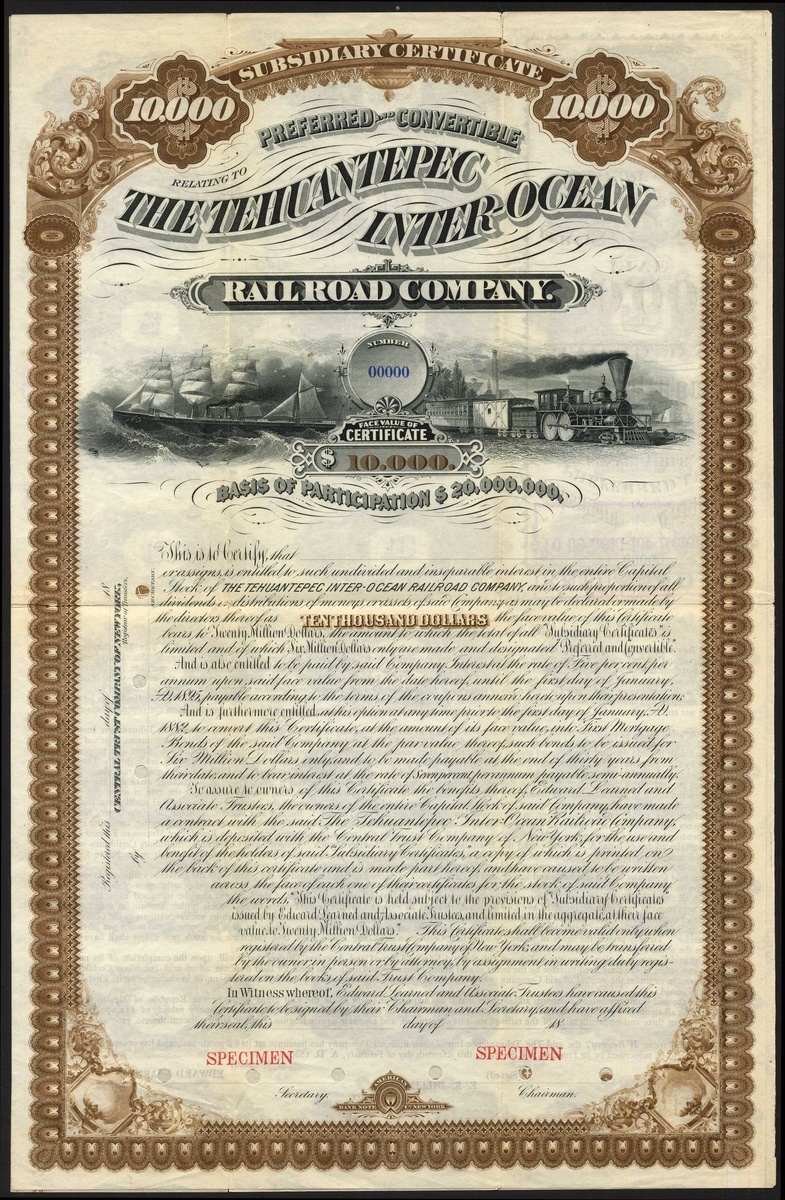 SUBSIDIARY CERTIFICATE
10.000 10.000
PREFERRED AND CONVERTIBLE
RELATING TO
THE TEHUANTEPEC
INTER-OCEAN
RAILROAD COMPANY.
NUMBER
00000
FACE VALUE OF
CERTIFICATE
$ 10.000.
BASIS OF PARTICIPATION $ 20,000,000.
This is to Certify, that
or assigns, is entitled to such undivided and inseparable interest in the entire Capital
Stock of THE TEHUANTEPEC INTER-OCEAN RAILROAD COMPANY, and to such proportion of all
dividends or distributions of moneys or assets of said Company as may be declared or made by
the directors thereof as TEN THOUSAND DOLLARS the face value of this Certificate
bears to Twenty Million Dollars, the amount to which the total of all "Subsidiary Certificates" is
limited and of which Six Million Dollars only are made and designated "Preferred and Convertible."
And is also entitled to be paid by said Company Interest at the rate of Five per cent per
annum upon said face value from the date hereof, until the first day of January,
A.D. 1895, payable according to the terms of the coupons annexed hereto, upon their presentation;
And is furthermore entitled, at his option at any time prior to the first day of January, A.D.
188 , to convert this Certificate, at the amount of its face value, into First Mortgage
Bonds of the said Company at the par value thereof, such bonds to be issued for
Six Million Dollars only, and to be made payable at the end of thirty years from
their date, and to bear interest at the rate of Seven per cent, per annum payable semi-annually.
To assure to owners of this Certificate the benefits thereof, Edward Learned and
Associate Trustees, the owners of the entire Capital Stock of said Company, have made
a contract with the said The Tehuantepec Inter-Ocean Railroad Company,
which is deposited with the Central Trust Company of New York, for the use and
benefit of the holders of said "Subsidiary Certificates," a copy of which is printed on
the back of this certificate and is made part hereof, and have caused to be written
across the face of each one of their certificates for the stock of said Company
the words. "This Certificate is held subject to the provisions of "Subsidiary Certificates
issued by Edward Learned and Associate Trustees, and limited in the aggregate, at their face
value, to Twenty Million Dollars." This Certificate shall become valid only when
registered by the Central Trust Company of New York, and may be transferred
by the owner, in person or by attorney, by assignment in writing duly regis-
tered on the books of said Trust Company.
In Witness whereof, Edward Learned and Associate Trustees have caused this
Certificate to be signed by their Chairman and Secretary, and have affixed
their seal, this day of 18
SPECIMEN SPECIMEN
Secretary. Chairman.
AMERICAN
BANK NOTE Co. NEW YORK.
Registered this day of 18
CENTRAL TRUST COMPANY OF NEW YORK,
Registrar of Transfers.
by